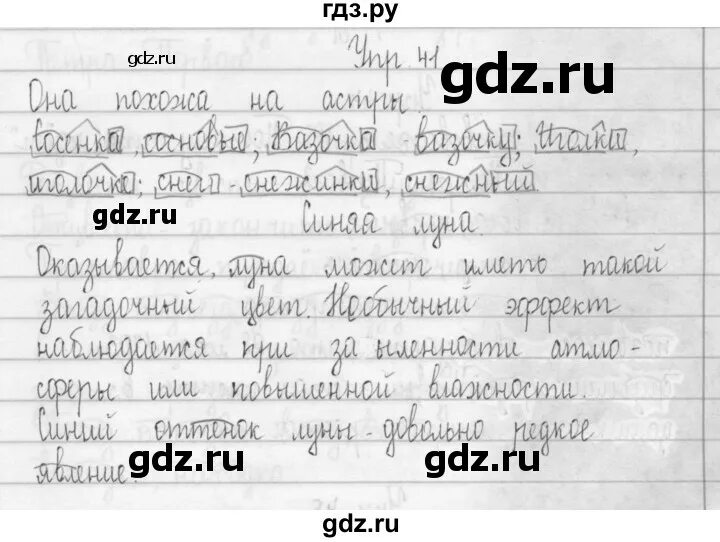 гдз.ру
gdz.ru
Упр. 41
gdz.ru
Она похожа на астры
сосенка, сосновые; вазочка - вазочку; иголки,
иголочка; снег - снежинки, снежный.
gdz.ru
Синяя луна.
Оказывается, луна может иметь такой
загадочный цвет. Необычный эффект
наблюдается при за ыленности атмо-
сферы или повышенной влажности.
Синий оттенок луны - довольно редкое
явление.
gdz.ru
gdz.ru
gdz.ru